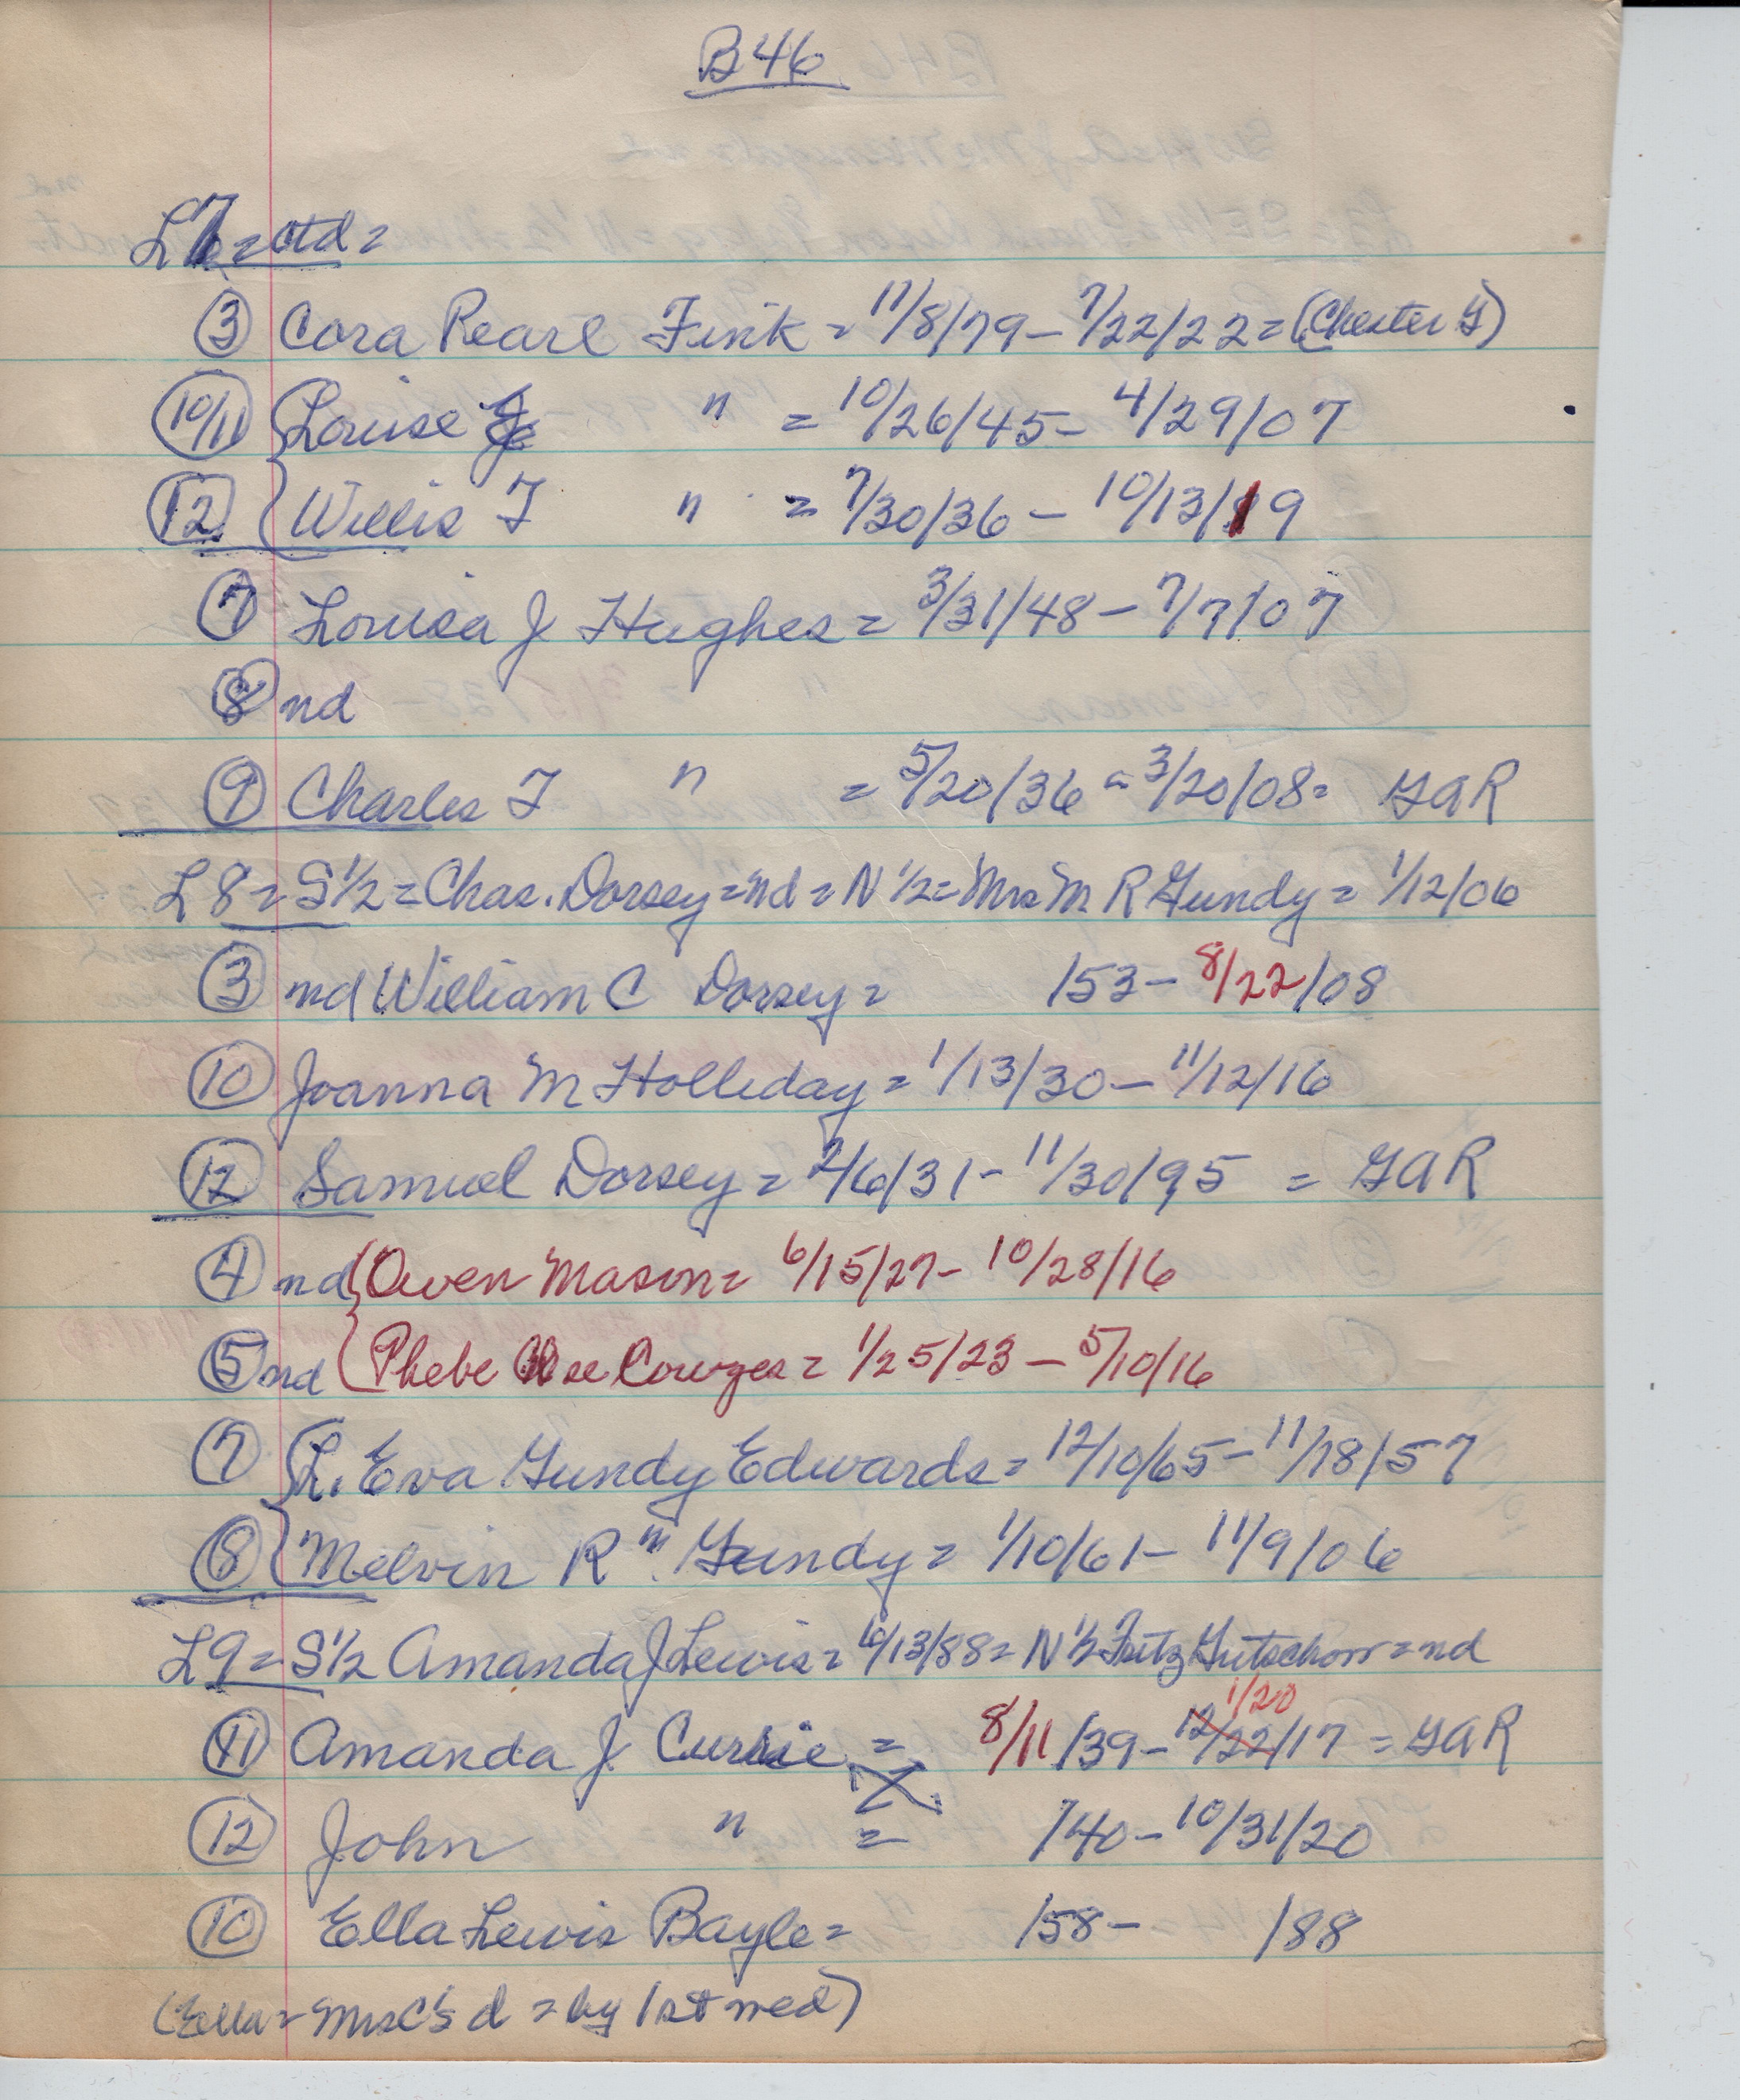 B46
L7 = ctd =
③ Cora Pearl Fink = 11/8/79 - 7/22/22 = (Chester G)
10/11 { Louise J " = 10/26/45 - 4/29/07
⑫ { Willis F " = 7/30/36 - 10/13/19
⑦ Louisa J Hughes = 3/31/48 - 7/7/07
⑧ nd
⑨ Charles F " = 5/20/36 = 3/20/08 = GAR
L 8 = S 1/2 = Chas. Dorsey = nd = N 1/2 = Mrs M R Gundy = 1/12/06
③ nd William C Dorsey = /53 - 8/22/08
⑩ Joanna M Holliday = 1/13/30 - 11/12/16
⑫ Samuel Dorsey = 2/6/31 - 11/30/95 = GAR
④ nd { Owen Mason = 6/15/27 - 10/28/16
⑤ nd { Phebe nee Cowges = 1/25/23 - 5/10/16
⑦ { L. Eva Gundy Edwards = 12/10/65 - 11/18/57
⑧ { Melvin R Gundy = 1/10/61 - 11/9/06
L 9 = S 1/2 Amanda J Lewis = 6/13/88 = N 1/2 Fritz Gutschow = nd
1/20
⑪ Amanda J Currie = 8/11/39 - 12/22/17 = GAR
⑫ John " = /40 - 10/31/20
⑩ Ella Lewis Bayle = /58 - /88
(Ella = Mrs C's d = by 1st wed)